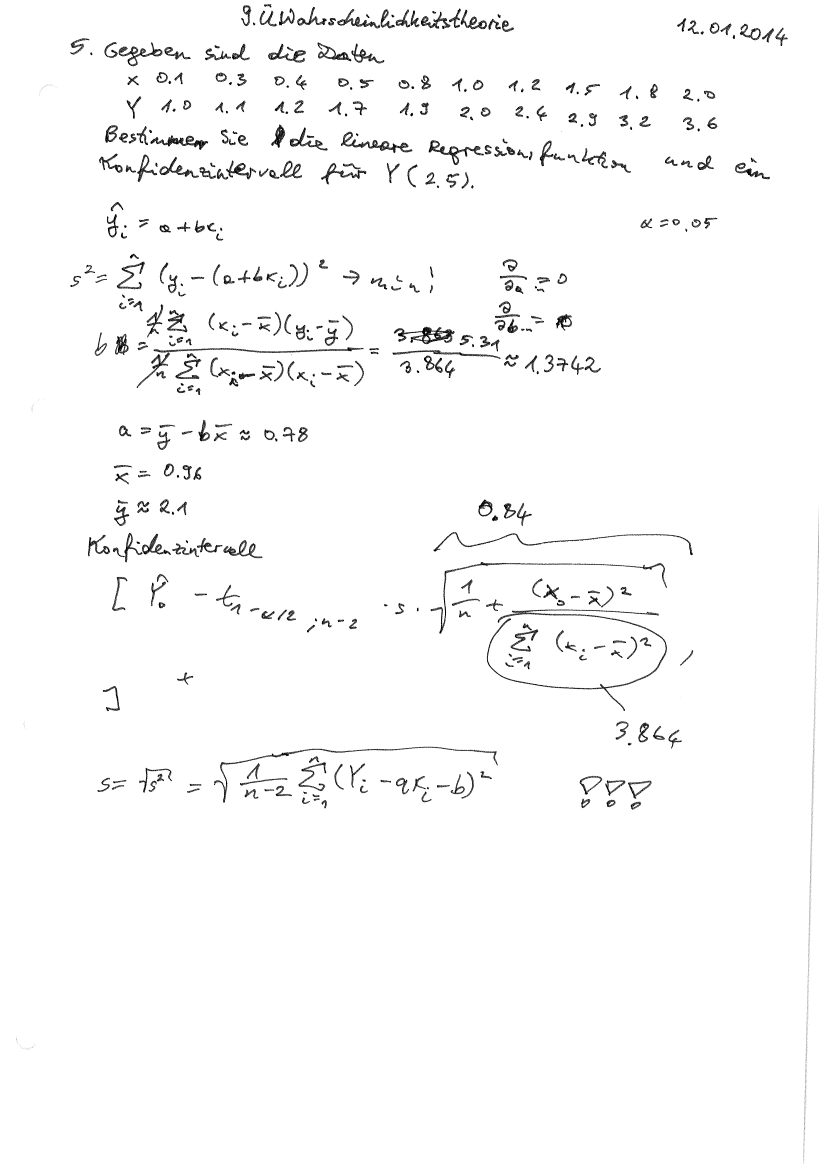 9. Ü Wahrscheinlichkeitstheorie 12.01.2014
5. Gegeben sind die Daten
x 0.1 0.3 0.4 0.5 0.8 1.0 1.2 1.5 1.8 2.0
Y 1.0 1.1 1.2 1.7 1.9 2.0 2.4 2.9 3.2 3.6
Bestimmen Sie die lineare Regressionsfunktion und ein
Konfidenzintervall für Y(2.5).
ŷ_i = a+bx_i α=0.05
s² = Σ_{i=1}^{n} (y_i − (a+bx_i))² → min! ∂/∂a … = 0
∂/∂b … = 0
b = (1/n Σ_{i=1}^{n} (x_i − x̄)(y_i − ȳ)) / (1/n Σ_{i=1}^{n} (x_i − x̄)(x_i − x̄)) = 5.31 / 3.864 ≈ 1.3742
a = ȳ − bx̄ ≈ 0.78
x̄ = 0.96
ȳ ≈ 2.1
0.84
Konfidenzintervall
[ Ŷ_0 − t_{1−α/2; n−2} · s · √(1/n + (x_0 − x̄)² / Σ_{i=1}^{n} (x_i − x̄)²) ,
+ ]
3.864
s = √s² = √(1/(n−2) Σ_{i=1}^{n} (Y_i − ax_i − b)²) !!!